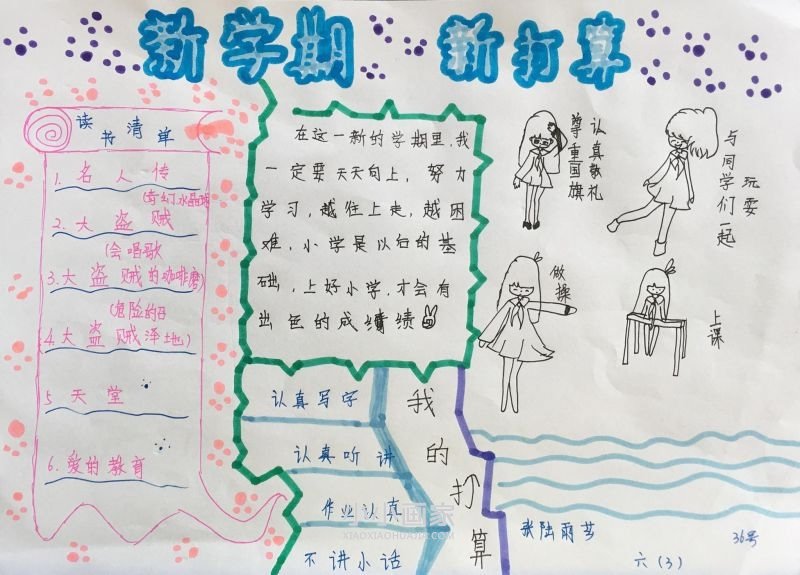 新学期 新打算
读书清单
1. 名人传
(奇幻水晶球
2. 大盗贼
(会唱歌
3. 大盗贼的咖啡磨)
(危险的
4. 大盗贼泽地)
5 天堂
6. 爱的教育
在这一新的学期里,我
一定要天天向上,努力
学习,越往上走,越困
难,小学是以后的基
础,上好小学,才会有
出色的成绩
认真敬礼
尊重国旗
与同学们一起
玩耍
做操
上课
认真写字
认真听讲
作业认真
不讲小话
我的打算
张陆雨芗
六(3)
36号
XIAOXIAOHUAJIA.COM